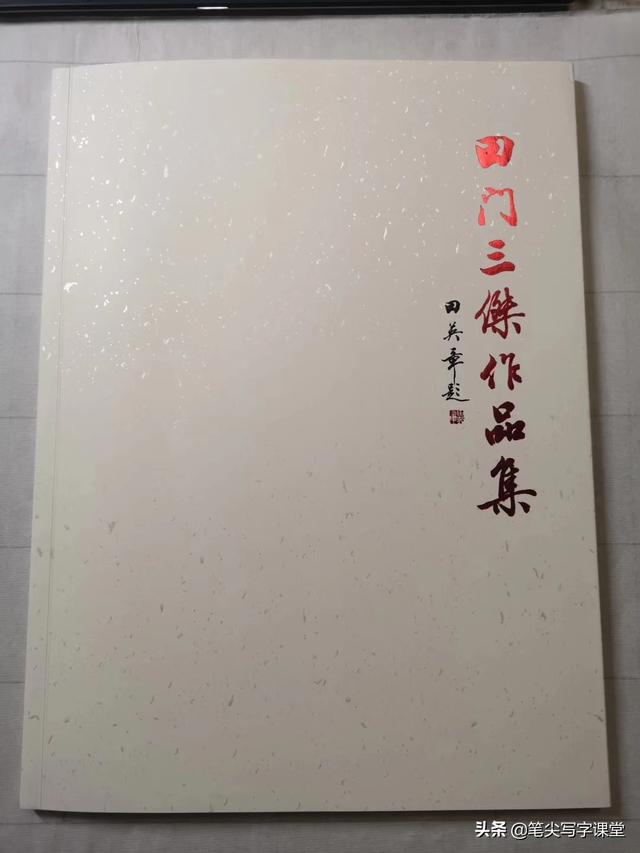 田门三傑作品集
田英章题
头条@笔尖写字课堂